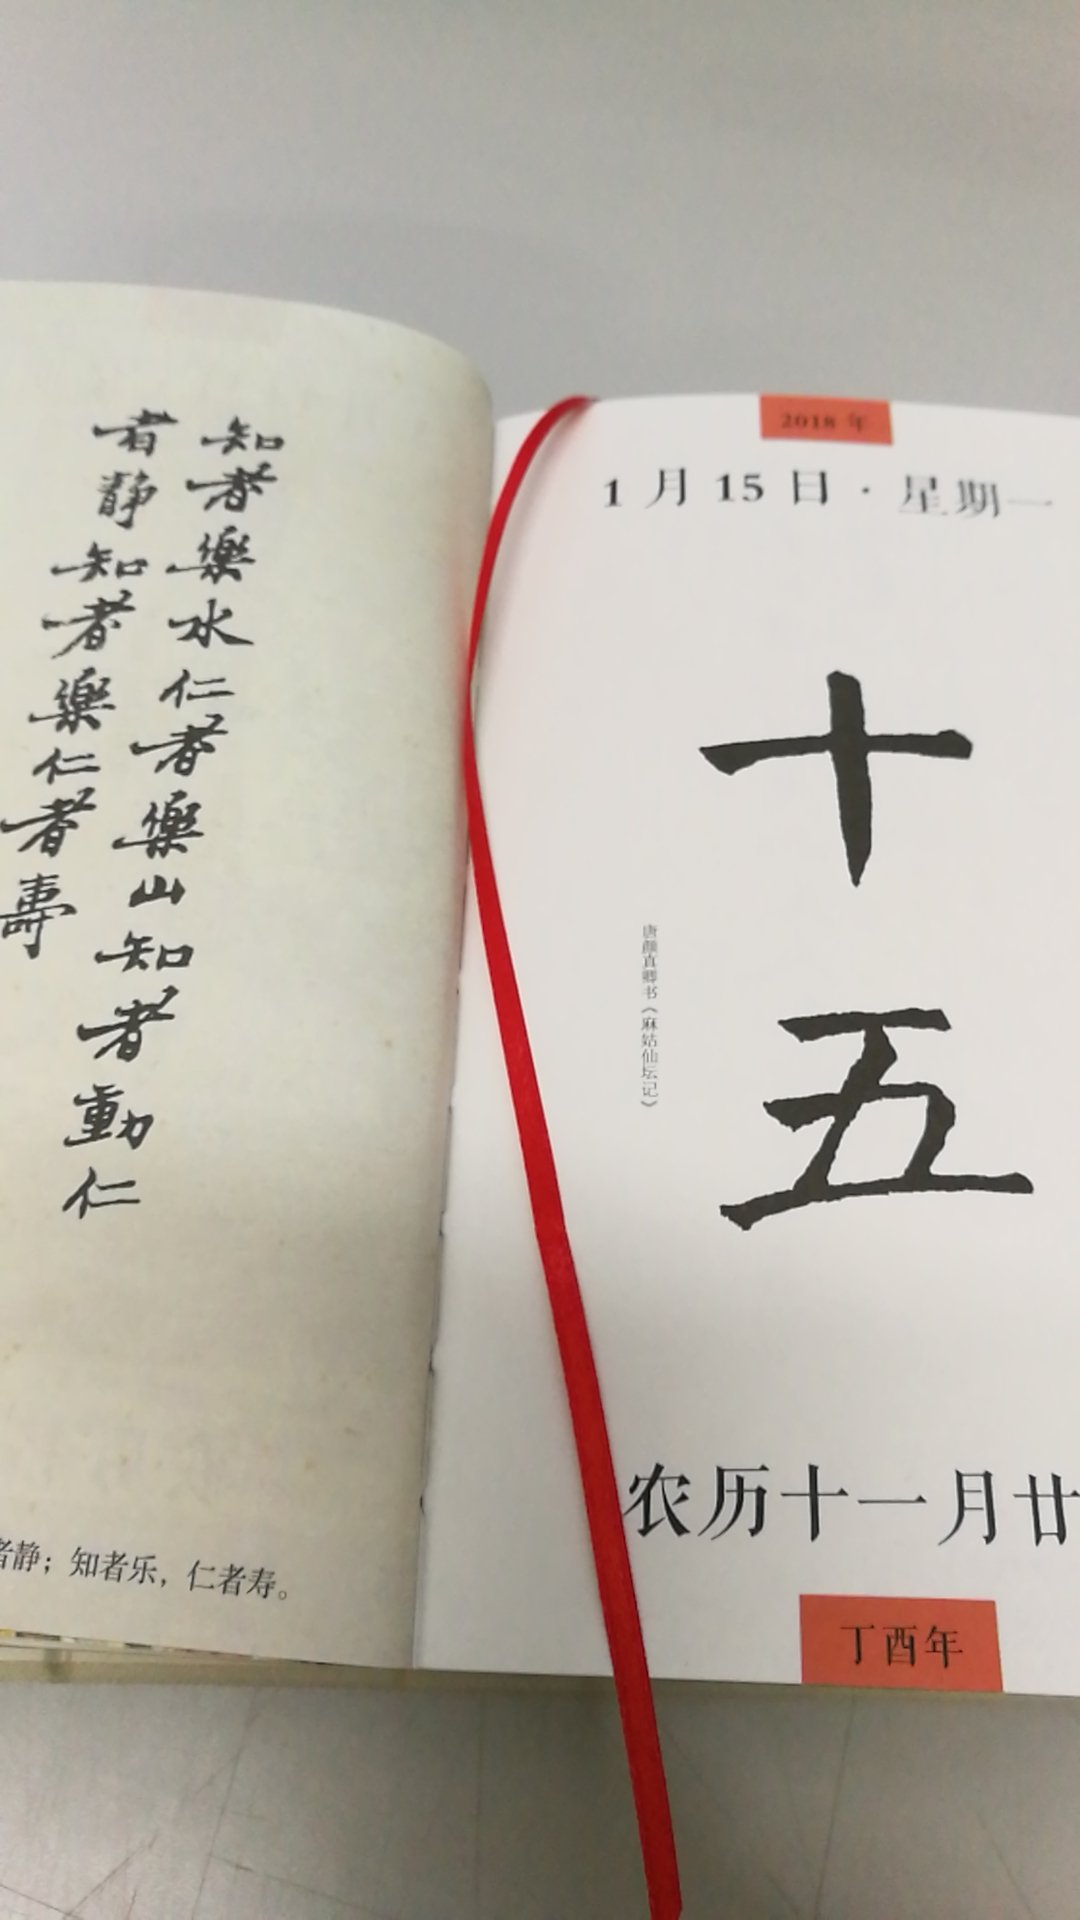 知者樂水仁者樂山知者動仁
者靜知者樂仁者壽
者静；知者乐，仁者寿。
2018 年
1 月 15 日 · 星期一
十五
唐颜真卿书《麻姑仙坛记》
农历十一月廿
丁酉年